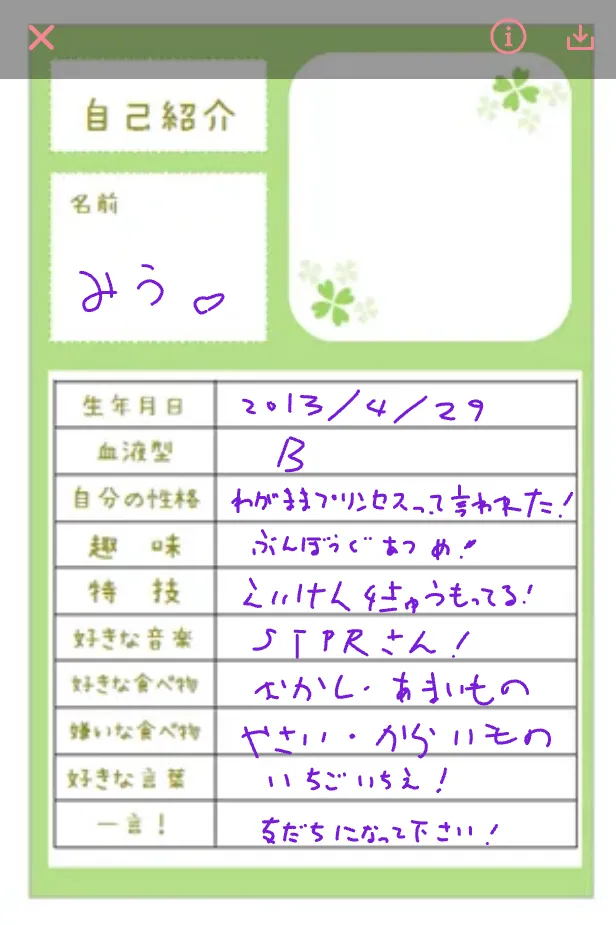 自己紹介
名前
みう。
生年月日 2013/4/29
血液型 B
自分の性格 わがままプリンセスって言われた!
趣味 ぶんぼうぐあつめ!
特技 えいけん4きゅうもってる!
好きな音楽 STPRさん!
好きな食べ物 おかし・あまいもの
嫌いな食べ物 やさい・からいもの
好きな言葉 いちごいちえ!
一言! 友だちになって下さい!